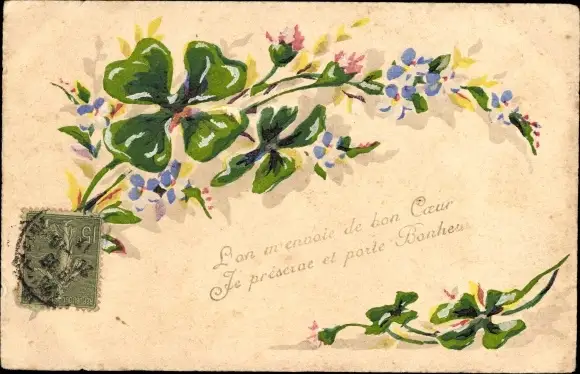 L'on m'envoie de bon Cœur
Je préserve et porte Bonheur
15